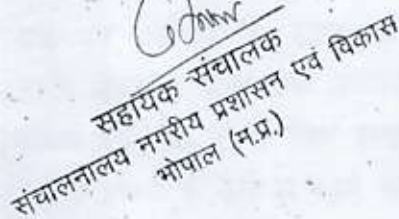 सहायक संचालक
संचालनालय नगरीय प्रशासन एवं विकास
भोपाल (म.प्र.)